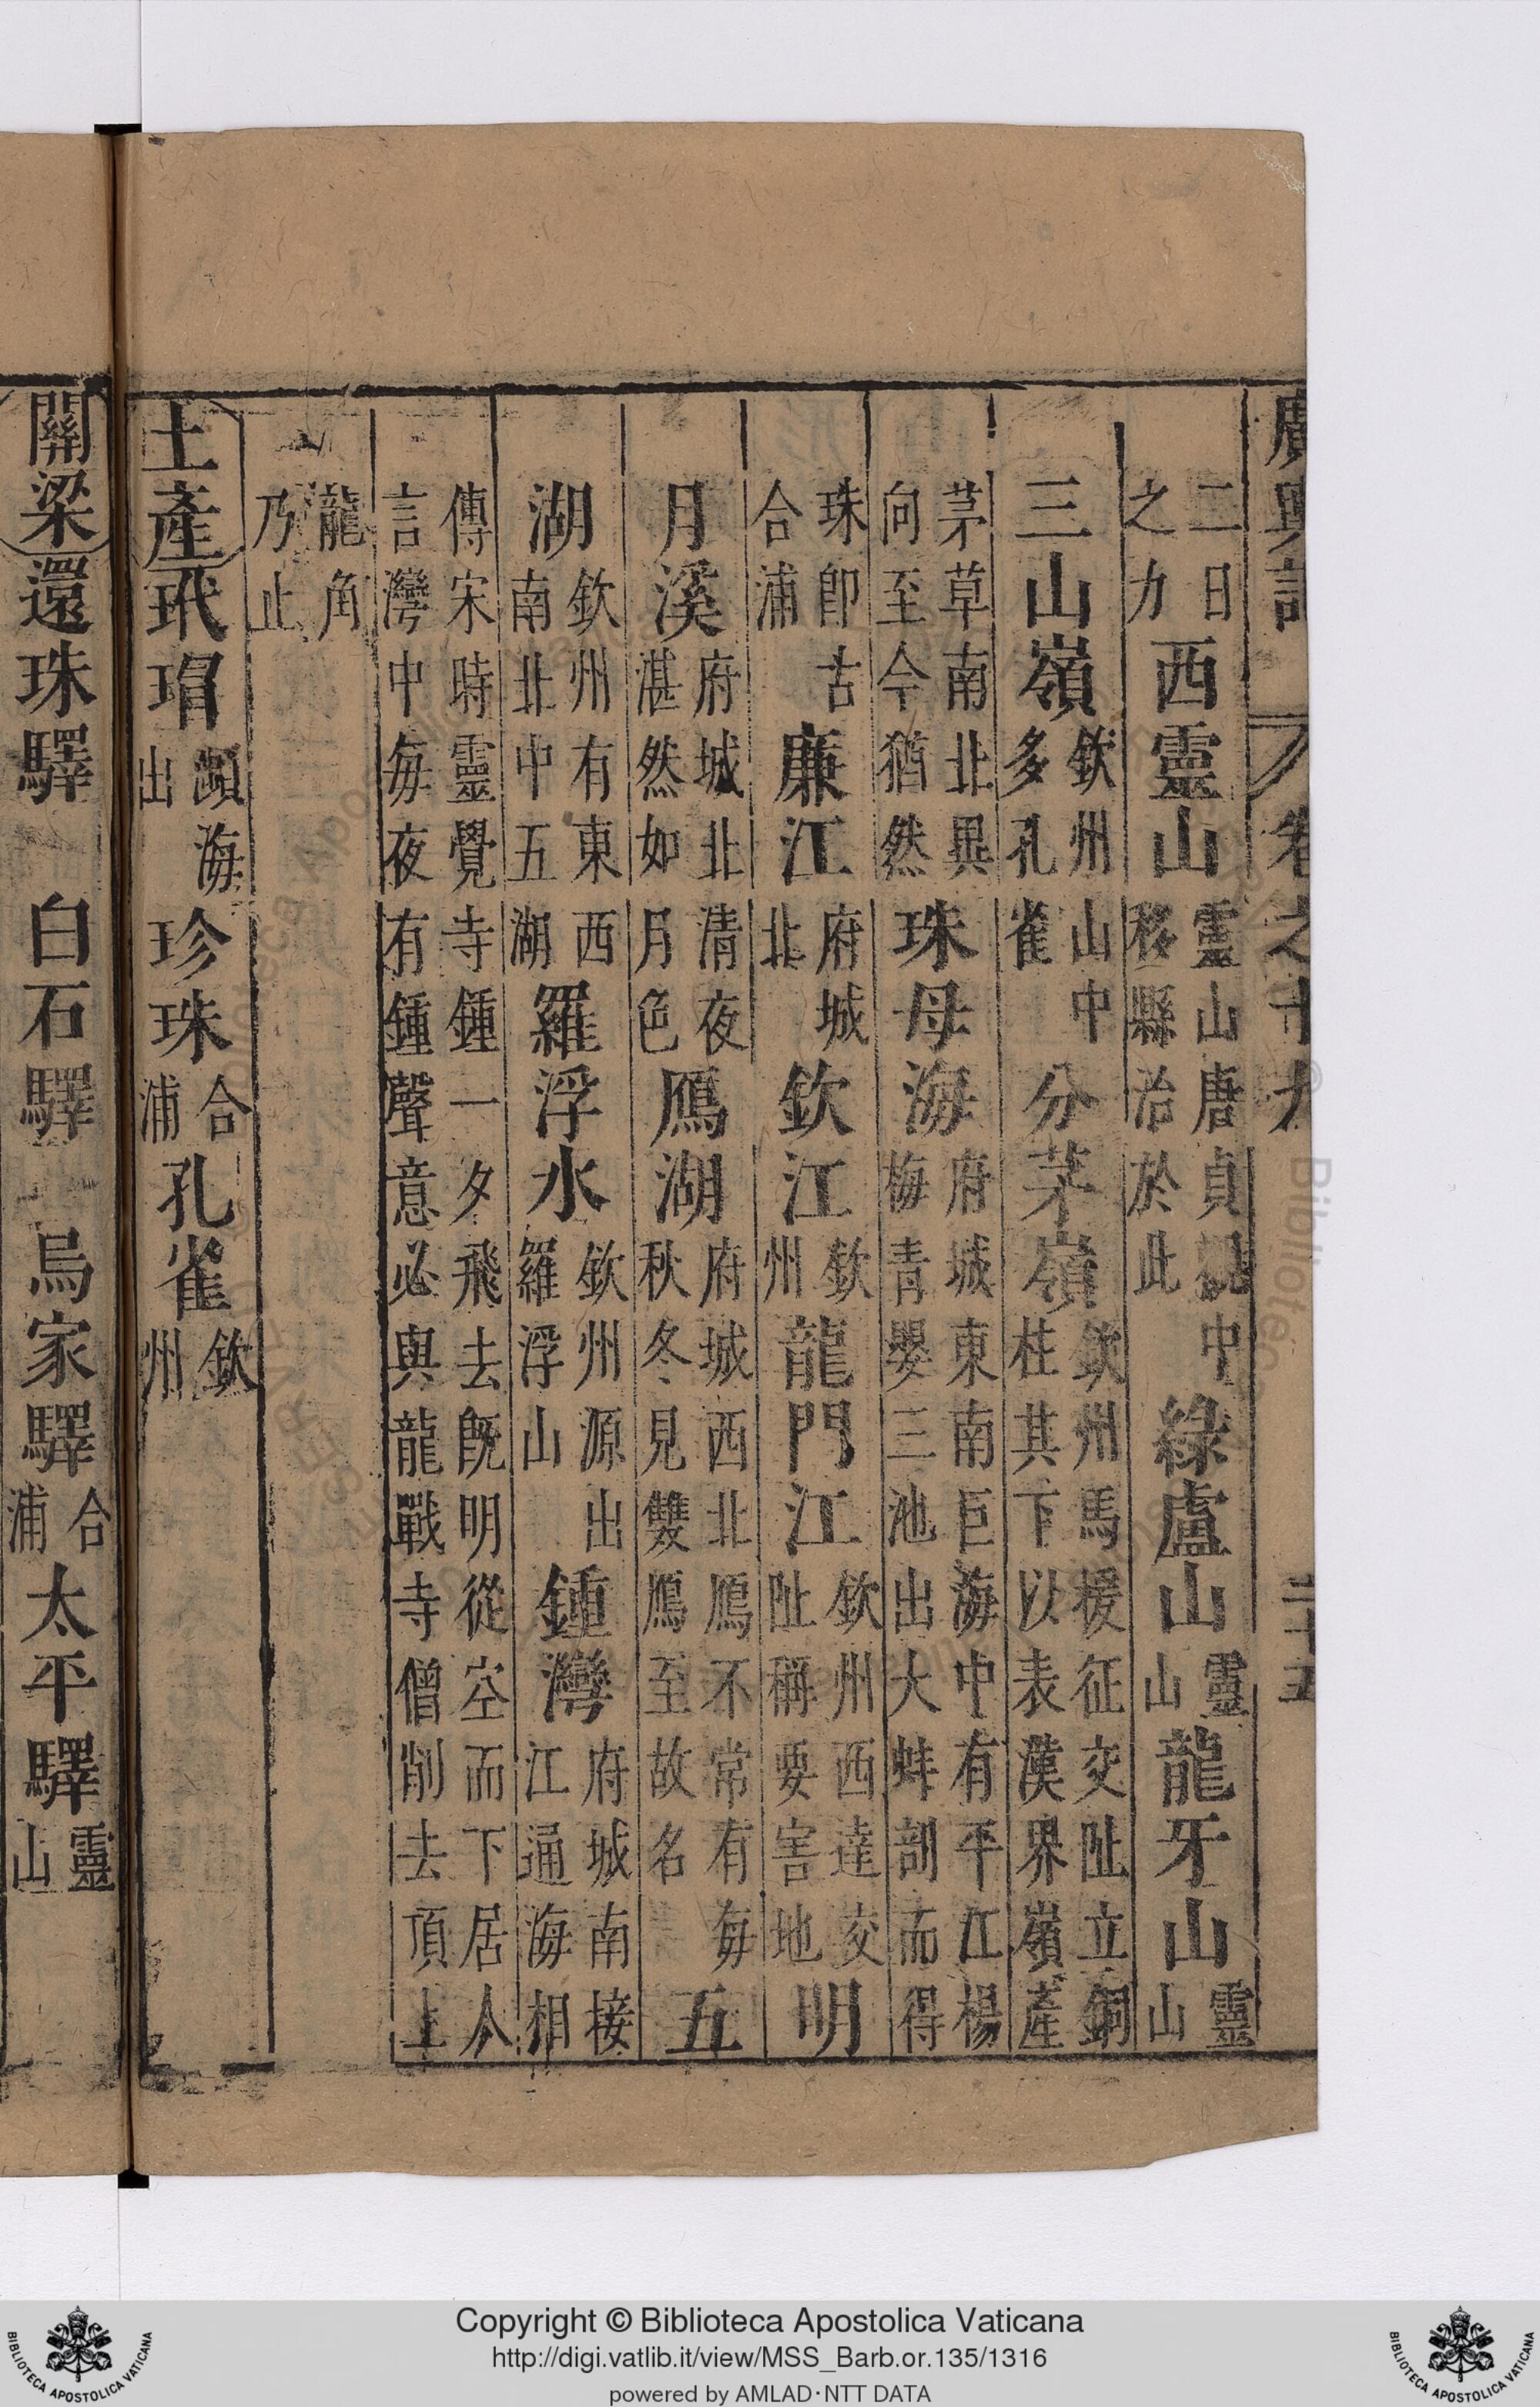 廣輿記 卷之十九 二十五
二日之力西靈山靈山唐貞觀中移縣治於此綠盧山靈山龍牙山靈山
三山嶺欽州山中多孔雀分茅嶺欽州馬援征交阯立銅柱其下以表漢界嶺產
茅草南北異向至今猶然珠母海府城東南巨海中有平江楊梅青嬰三池出大蚌剖而得
珠卽古合浦廉江府城北欽江欽州龍門江欽州西達交阯稱要害地明
月溪府城北清夜湛然如月色鴈湖府城西北鴈不常有每秋冬見雙鴈至故名五
湖欽州有東西南北中五湖羅浮水欽州源出羅浮山鍾灣府城南接江通海相
傳宋時靈覺寺鍾一夕飛去旣明從空而下居人言灣中每夜有鍾聲意必與龍戰寺僧削去頂上
龍角乃止
土產玳瑁瀕海出珍珠合浦孔雀欽州
關梁還珠驛 白石驛 烏家驛合浦太平驛靈山
Copyright © Biblioteca Apostolica Vaticana
http://digi.vatlib.it/view/MSS_Barb.or.135/1316
powered by AMLAD·NTT DATA
BIBLIOTECA APOSTOLICA VATICANA
BIBLIOTECA APOSTOLICA VATICANA